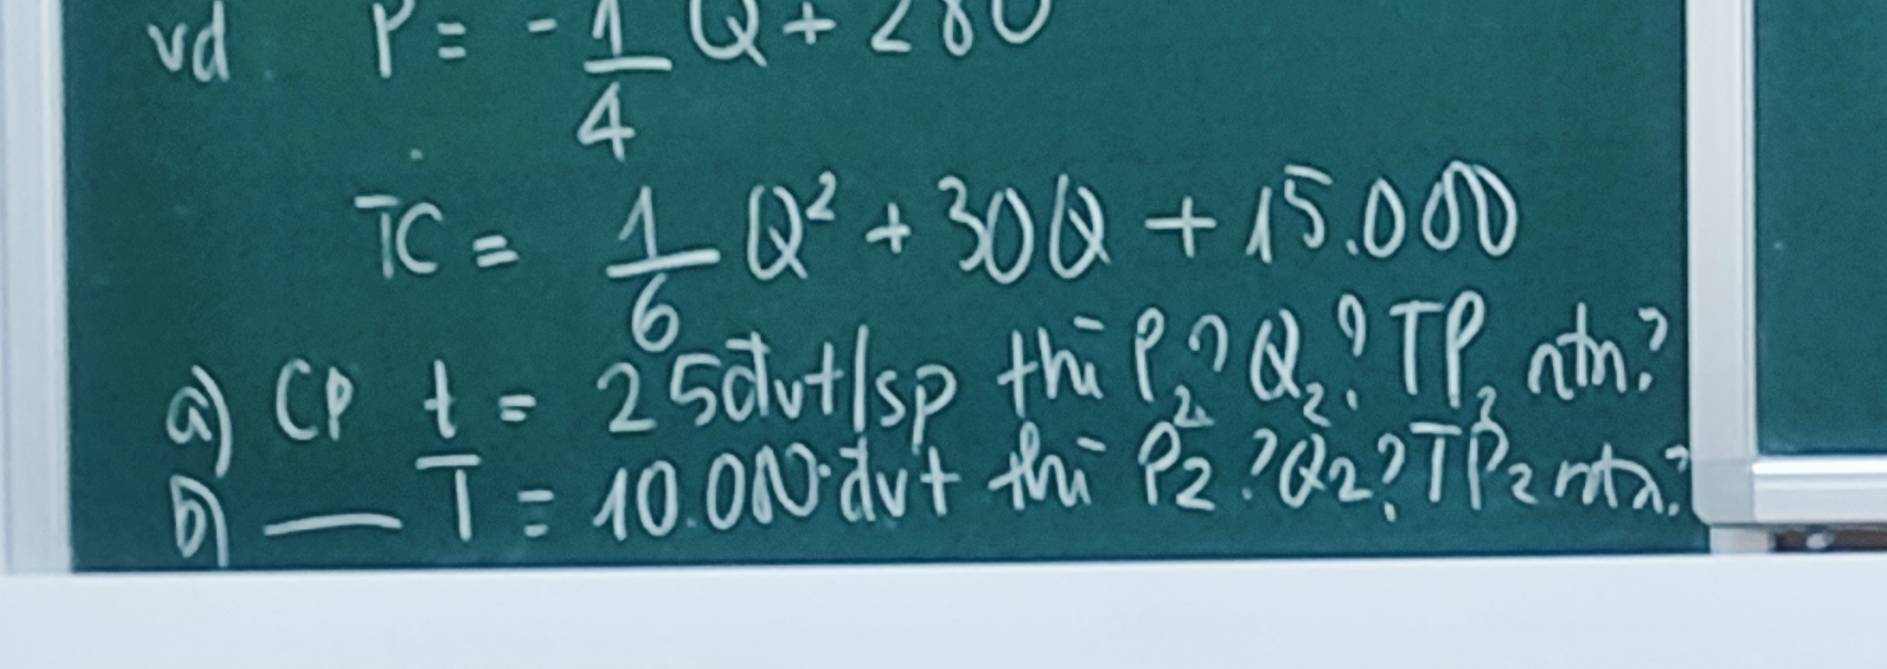 vd P = - 1/4 Q + 280
TC = 1/6 Q² + 30Q + 15.000
a) CP t = 25đvt/sp thì P₂? Q₂? TP₂ ntn?
b) — T = 10.000 đvt thì P₂? Q₂? TP₂ ntn?